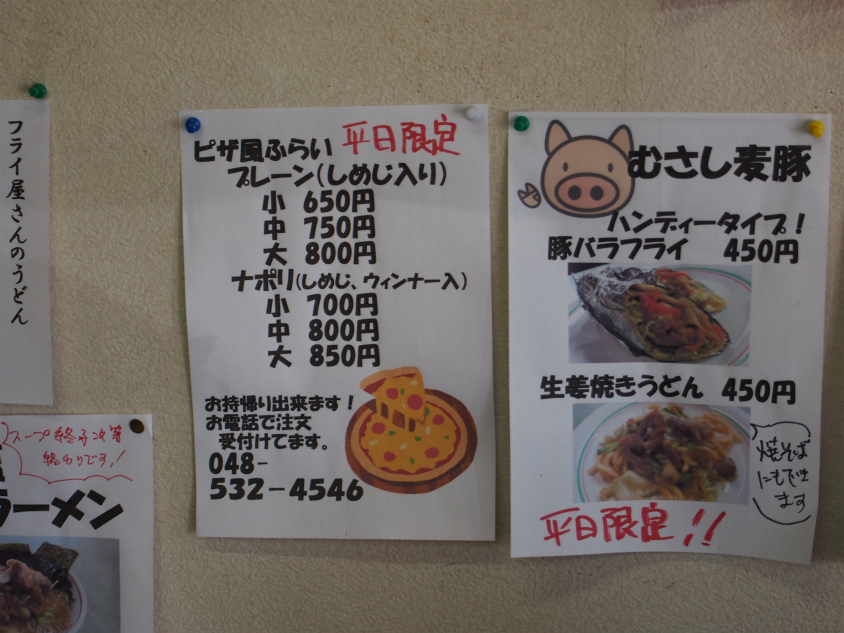 フライ屋さんのうどん
スープ終了次第
終わりです!
ラーメン
ピザ風ふらい 平日限定
プレーン(しめじ入り)
小 650円
中 750円
大 800円
ナポリ(しめじ、ウィンナー入)
小 700円
中 800円
大 850円
お持帰り出来ます!
お電話で注文
受付けてます。
048-
532-4546
むさし麦豚
ハンディータイプ!
豚バラフライ 450円
生姜焼きうどん 450円
焼そば
にもでき
ます
平日限定!!